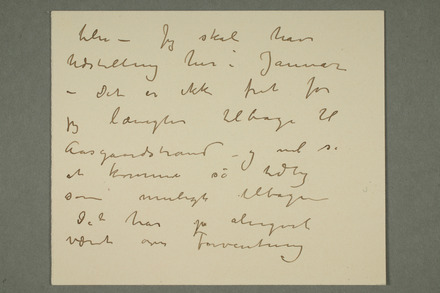 blev – Jeg skal have
Udstilling her i Januar
– Det er ikke frit for
jeg længter tilbage til
Aasgaardstrand – og vil se
at komme så tidlig
som muligt tilbage
Det har jo
været over Forventning